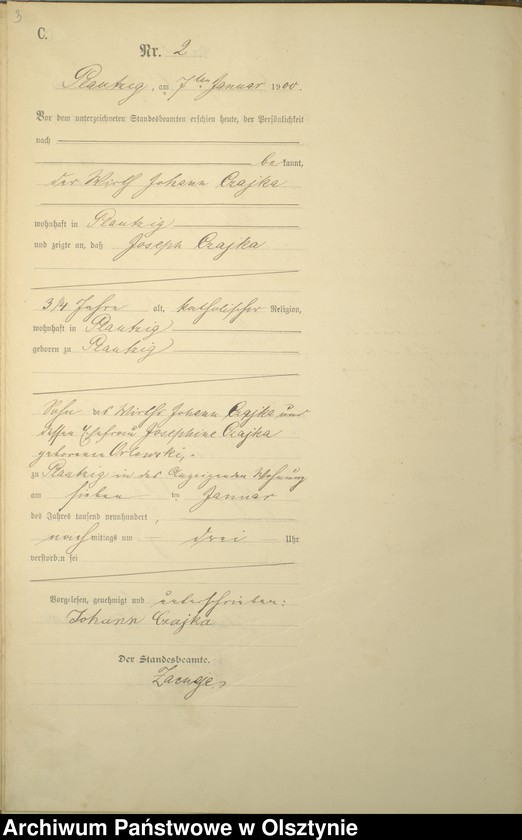 3
C.
Nr. 2
Plautzig, am 7ten Januar 1900.
Vor dem unterzeichneten Standesbeamten erschien heute, der Persönlichkeit
nach
be kannt,
der Wirth Johann Czajka
wohnhaft in Plautzig
und zeigte an, daß Joseph Czajka
3/4 Jahre alt, katholischer Religion,
wohnhaft in Plautzig
geboren zu Plautzig
Sohn des Wirths Johann Czajka und
dessen Ehefrau Josephine Czajka
geborenen Orlowski,
zu Plautzig in des Anzeigenden Wohnung
am sieben ten Januar
des Jahres tausend neunhundert
nach mittags um drei Uhr
verstorben sei
Vorgelesen, genehmigt und unterschrieben:
Johann Czajka
Der Standesbeamte.
Archiwum Państwowe w Olsztynie